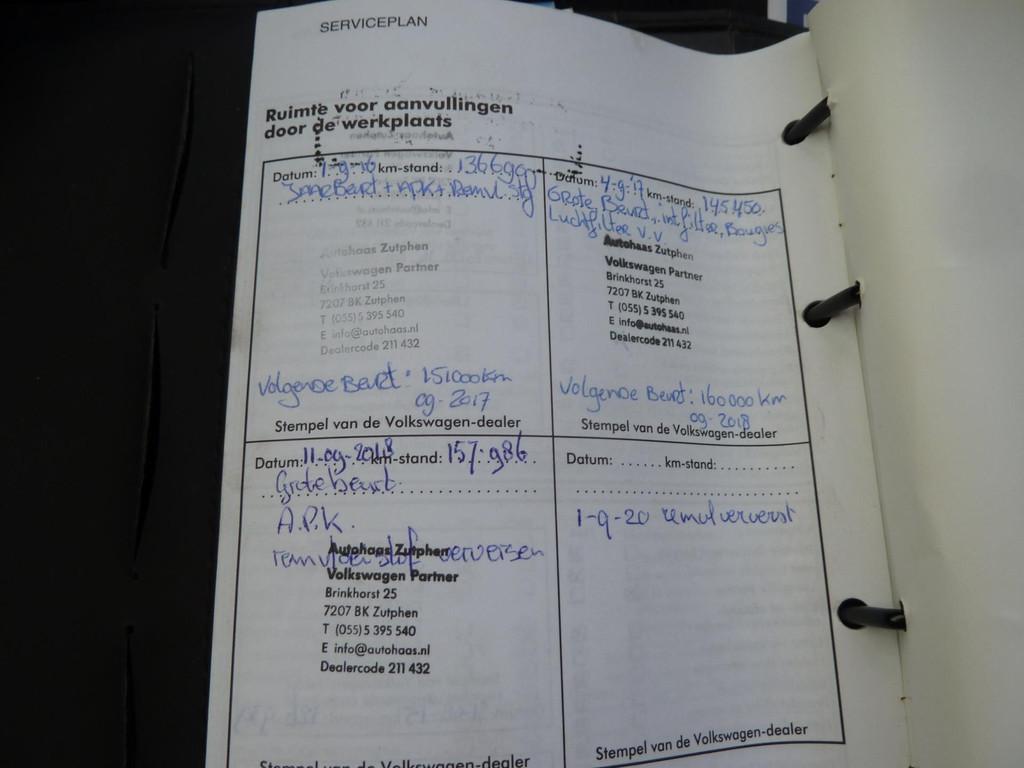 SERVICEPLAN
Ruimte voor aanvullingen
door de werkplaats
Datum: 1-9-16 km-stand: 136690
JaarBeurt + APK + Remvl. stg
Autohaas Zutphen
Volkswagen Partner
Brinkhorst 25
7207 BK Zutphen
T (055) 5 395 540
E info@autohaas.nl
Dealercode 211 432
Volgende Beurt: 151000 km
09-2017
Stempel van de Volkswagen-dealer
Datum: 4-9-'17 km-stand: 145.450.
Grote Beurt, int.filter, Bougies
Luchtfilter v.v
Autohaas Zutphen
Volkswagen Partner
Brinkhorst 25
7207 BK Zutphen
T (055) 5 395 540
E info@autohaas.nl
Dealercode 211 432
Volgende Beurt: 160000 km
09-2018
Stempel van de Volkswagen-dealer
Datum: 11-09-2018 km-stand: 157.986
Grote beurt
A.P.K.
remvloeistof verversen
Autohaas Zutphen
Volkswagen Partner
Brinkhorst 25
7207 BK Zutphen
T (055) 5 395 540
E info@autohaas.nl
Dealercode 211 432
Stempel van de Volkswagen-dealer
Datum: ...... km-stand: ..........
1-9-20 remvl ververst
Stempel van de Volkswagen-dealer